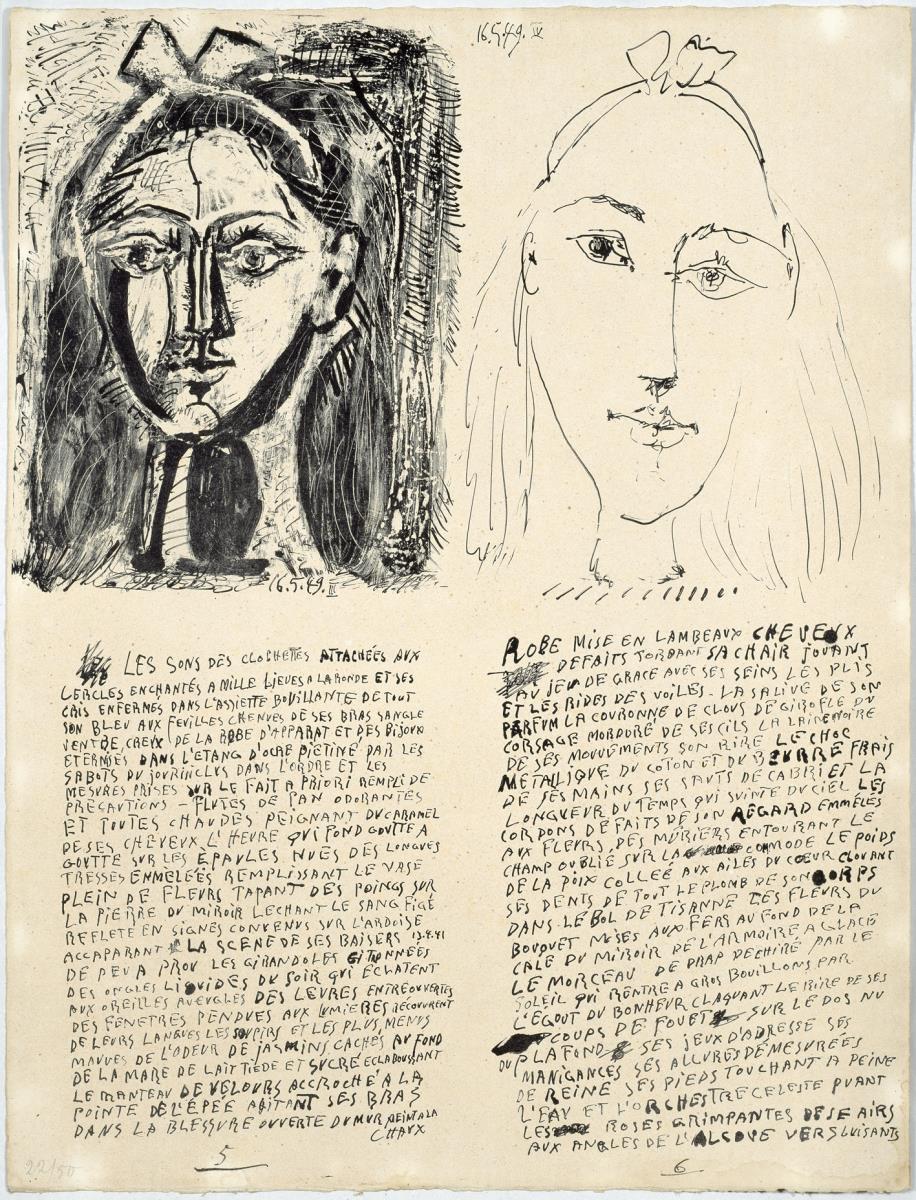 16.5.49. IV
16.5.49. III
LES SONS DES CLOCHETTES ATTACHÉES AUX
CERCLES ENCHANTÉS A MILLE LIEUES A LA RONDE ET SES
CRIS ENFERMÉS DANS L'ASSIETTE BOUILLANTE DE TOUT
SON BLEU AUX FEUILLES CHENUES DE SES BRAS SANGLE
VENTRE CREUX DE LA ROBE D'APPARAT ET DES BIJOUX
ETERNISÉS DANS L'ETANG D'OCRE PIETINÉ PAR LES
SABOTS DU DANS L'ORDRE ET LES
MESURES PRISES SUR LE FAIT A PRIORI REMPLI DE
PRÉCAUTIONS – FLUTES DE PAN ODORANTES
ET TOUTES CHAUDES PEIGNANT DU CARAMEL
DE SES CHEVEUX L'HEURE QUI FOND GOUTTE A
GOUTTE SUR LES ÉPAULES NUES DES LONGUES
TRESSES EMMELÉES REMPLISSANT LE VASE
PLEIN DE FLEURS TAPANT DES POINGS SUR
LA PIERRE DU MIROIR LECHANT LE SANG FIGÉ
REFLETÉ EN SIGNES CONVENUS SUR L'ARDOISE
ACCAPARANT LA SCÈNE DE SES BAISERS 13.9.41
DE PEU A PROU LES GIRANDOLES
DES ONGLES LIQUIDES DU SOIR QUI ÉCLATENT
AUX OREILLES AVEUGLES DES LEVRES ENTREOUVERTES
DES FENETRES PENDUES AUX LUMIERES RECOUVRENT
DE LEURS LANGUES LES SOUPIRS ET LES PLUS MENUS
MAUVES DE L'ODEUR DE JASMINS CACHÉS AU FOND
DE LA MARE DE LAIT TIÈDE ET SUCRÉ ECLABOUSSANT
LE MANTEAU DE VELOURS ACCROCHÉ A LA
POINTE DE L'ÉPÉE AGITANT SES BRAS
DANS LA BLESSURE OUVERTE DU MUR PEINT A LA
CHAUX
5
22/50
ROBE MISE EN LAMBEAUX CHEVEUX
DÉFAITS TORDANT SA CHAIR JOUANT
AU JEU DE GRACE AVEC SES SEINS LES PLIS
ET LES RIDES DES VOILES – LA SALIVE DE SON
PARFUM LA COURONNE DE CLOUS DE GIROFLE DU
CORSAGE MORDORÉ DE SES CILS LA
DE SES MOUVEMENTS SON RIRE LE CHOC
METALLIQUE DU COTON ET DU BEURRE FRAIS
DE SES MAINS SES SAUTS DE CABRI ET LA
LONGUEUR DU TEMPS QUI SUINTE DU CIEL LES
CORDONS DÉFAITS DE SON REGARD EMMÊLÉS
AUX FLEURS DES MÛRIERS ENTOURANT LE
CHAMP OUBLIÉ SUR LA COMMODE LE POIDS
DE LA POIX COLLÉE AUX AILES DU CŒUR CLOUANT
SES DENTS DE TOUT LE PLOMB DE SON CORPS
DANS LE BOL DE TISANNE DES FLEURS DU
BOUQUET MISES AUX FERS AU FOND DE LA
CALE DU MIROIR DE L'ARMOIRE A GLACE
LE MORCEAU DE DRAP DÉCHIRÉ PAR LE
SOLEIL QUI RENTRE A GROS BOUILLONS PAR
L'ÉGOUT DU BONHEUR CLAQUANT LE RIRE DE SES
COUPS DE FOUET SUR LE DOS NU
DU PLAFOND SES JEUX D'ADRESSE SES
MANIGANCES SES ALLURES DÉMESURÉES
DE REINE SES PIEDS TOUCHANT A PEINE
L'EAU ET L'ORCHESTRE CELESTE PUANT
LES ROSES GRIMPANTES DE SE AIRS
AUX ANGLES DE L'ALCOVE VERS LUISANTS
6